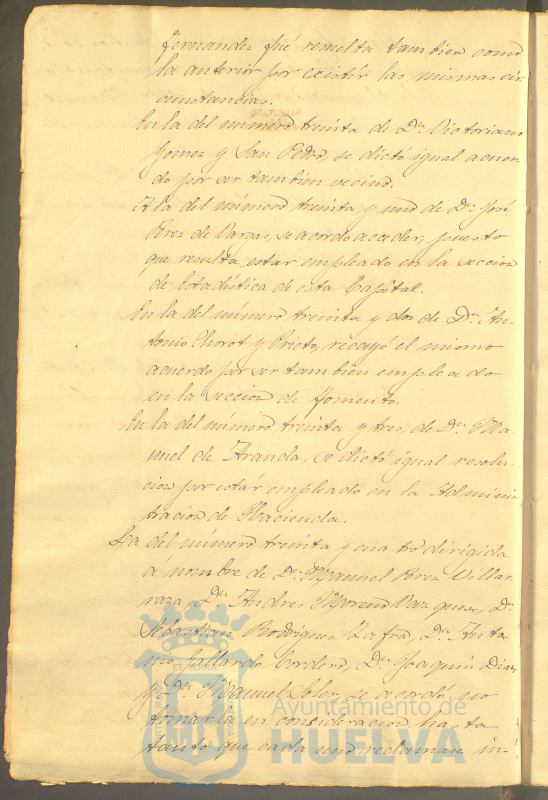 Fernandez qué resulta tambien como
la anterior por existir las mismas cir-
cunstancias.
En la del número treinta de Dn. Victoriano
Gomez y San Pedro, se dictó igual acuer-
do por ser tambien vecino.
A la del número treinta y uno de Dn. José
Perez de Vargas, se acordo acceder, puesto
que resulta estar empleado en la seccion
de Estadistica de esta Capital.
En la del número treinta y dos de Dn. An-
tonio Chorot y Prieto, recayó el mismo
acuerdo por ser tambien empleado
en la seccion de Fomento.
En la del número treinta y tres, de Dn. Ma-
nuel de Aranda, se dictó igual resolu-
cion por estar empleado en la Adminis-
tracion de Hacienda.
La del número treinta y cuatro dirigida
á nombre de Dn. Manuel Perez Villar
Dn. Andres Moreno Vazquez, Dn.
Sebastian Rodriguez Zafra, Dn. Anto-
nio Gallardo Cordero, Dn. Joaquin Diaz,
y Dn. Manuel Soler, se acordó no
tomarla en consideracion hasta
tanto que cada uno reclamase in-
Ayuntamiento de
HUELVA